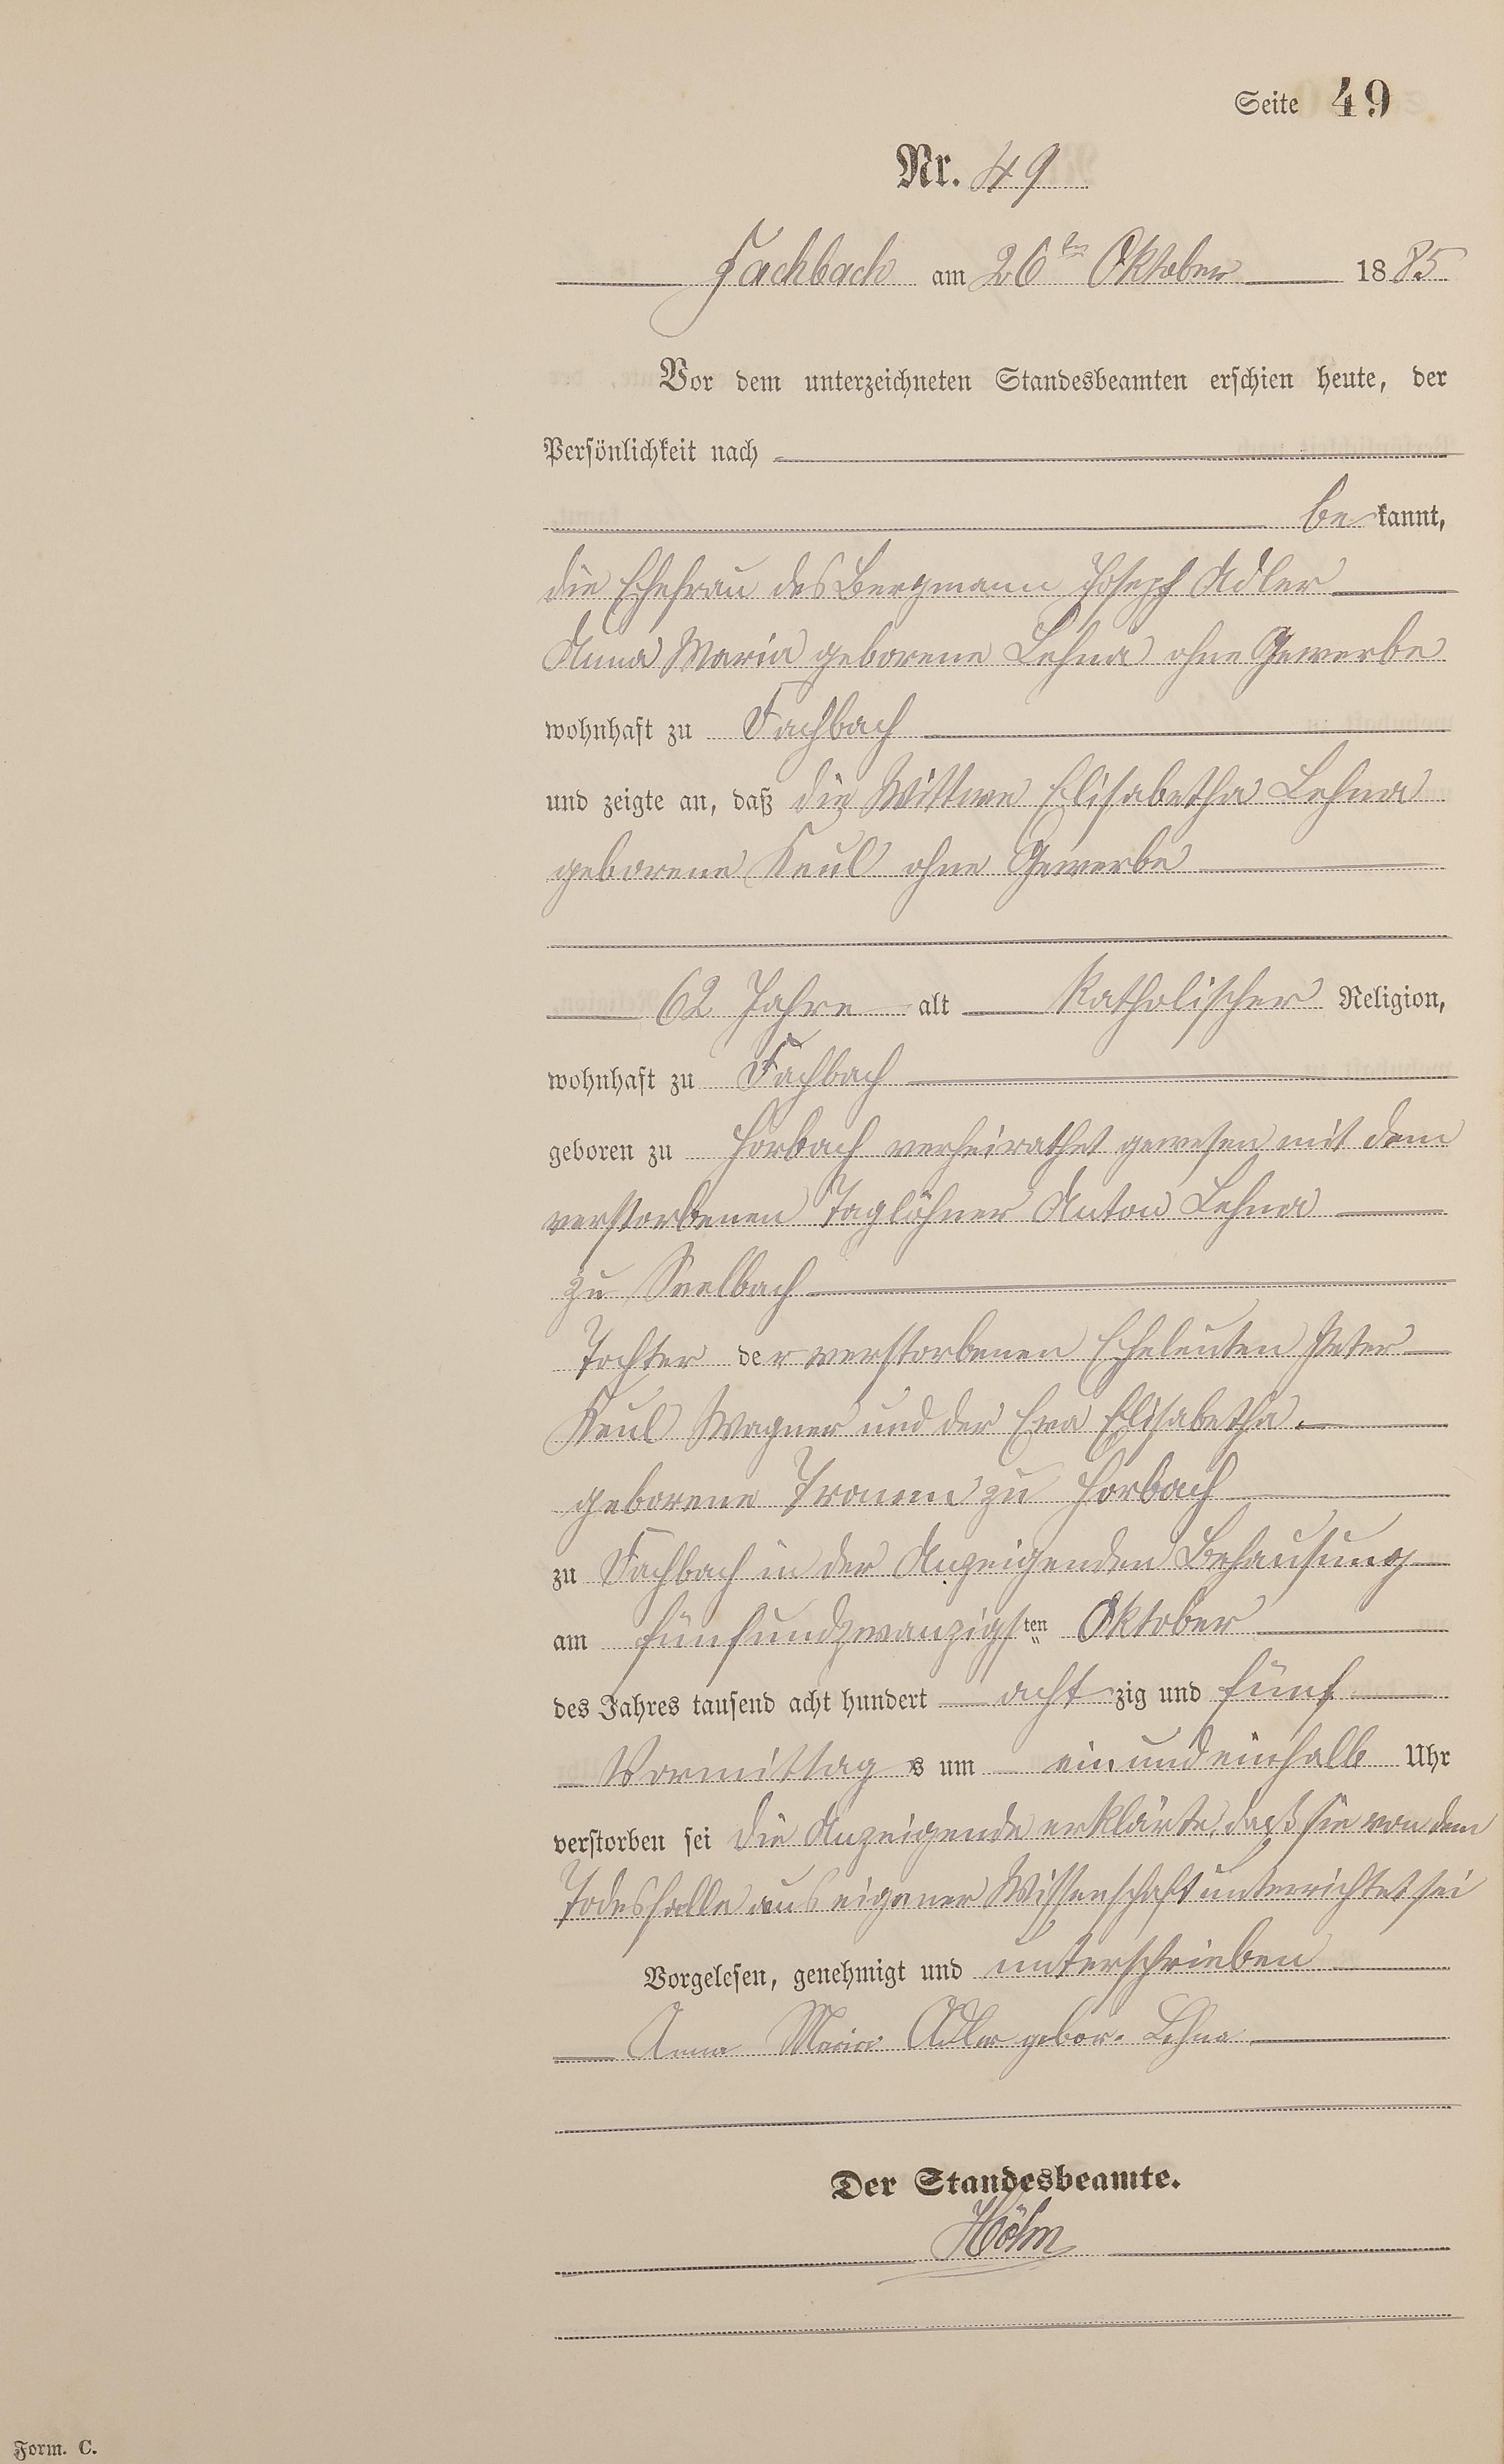 Seite 49
Nr. 49
Fachbach am 26ten Oktober 1885
Vor dem unterzeichneten Standesbeamten erschien heute, der
Persönlichkeit nach
be kannt,
die Ehefrau des Bergmann Joseph Adler
Anna Maria geborene Lehna ohne Gewerbe
wohnhaft zu Fachbach
und zeigte an, daß die Wittwe Elisabetha Lehna
geborene Keul ohne Gewerbe
62 Jahre alt katholischer Religion,
wohnhaft zu Fachbach
geboren zu Horbach verheirathet gewesen mit dem
verstorbenen Taglöhner Anton Lehna
zu Seelbach
Tochter der verstorbenen Eheleuten Peter
Keul Wagner und der Eva Elisabetha
geborene zu Horbach
zu Fachbach in der Anzeigenden Behausung
am fünfundzwanzigsten Oktober
des Jahres tausend acht hundert acht zig und fünf
Vormittag s um ein und einhalb Uhr
verstorben sei die Anzeigende erklärte, daß sie von dem
Todesfalle aus eigener Wissenschaft unterrichtet sei
Vorgelesen, genehmigt und unterschrieben
Anna Maria Adler gebor. Lehna
Der Standesbeamte.
Höhn
Form. C.